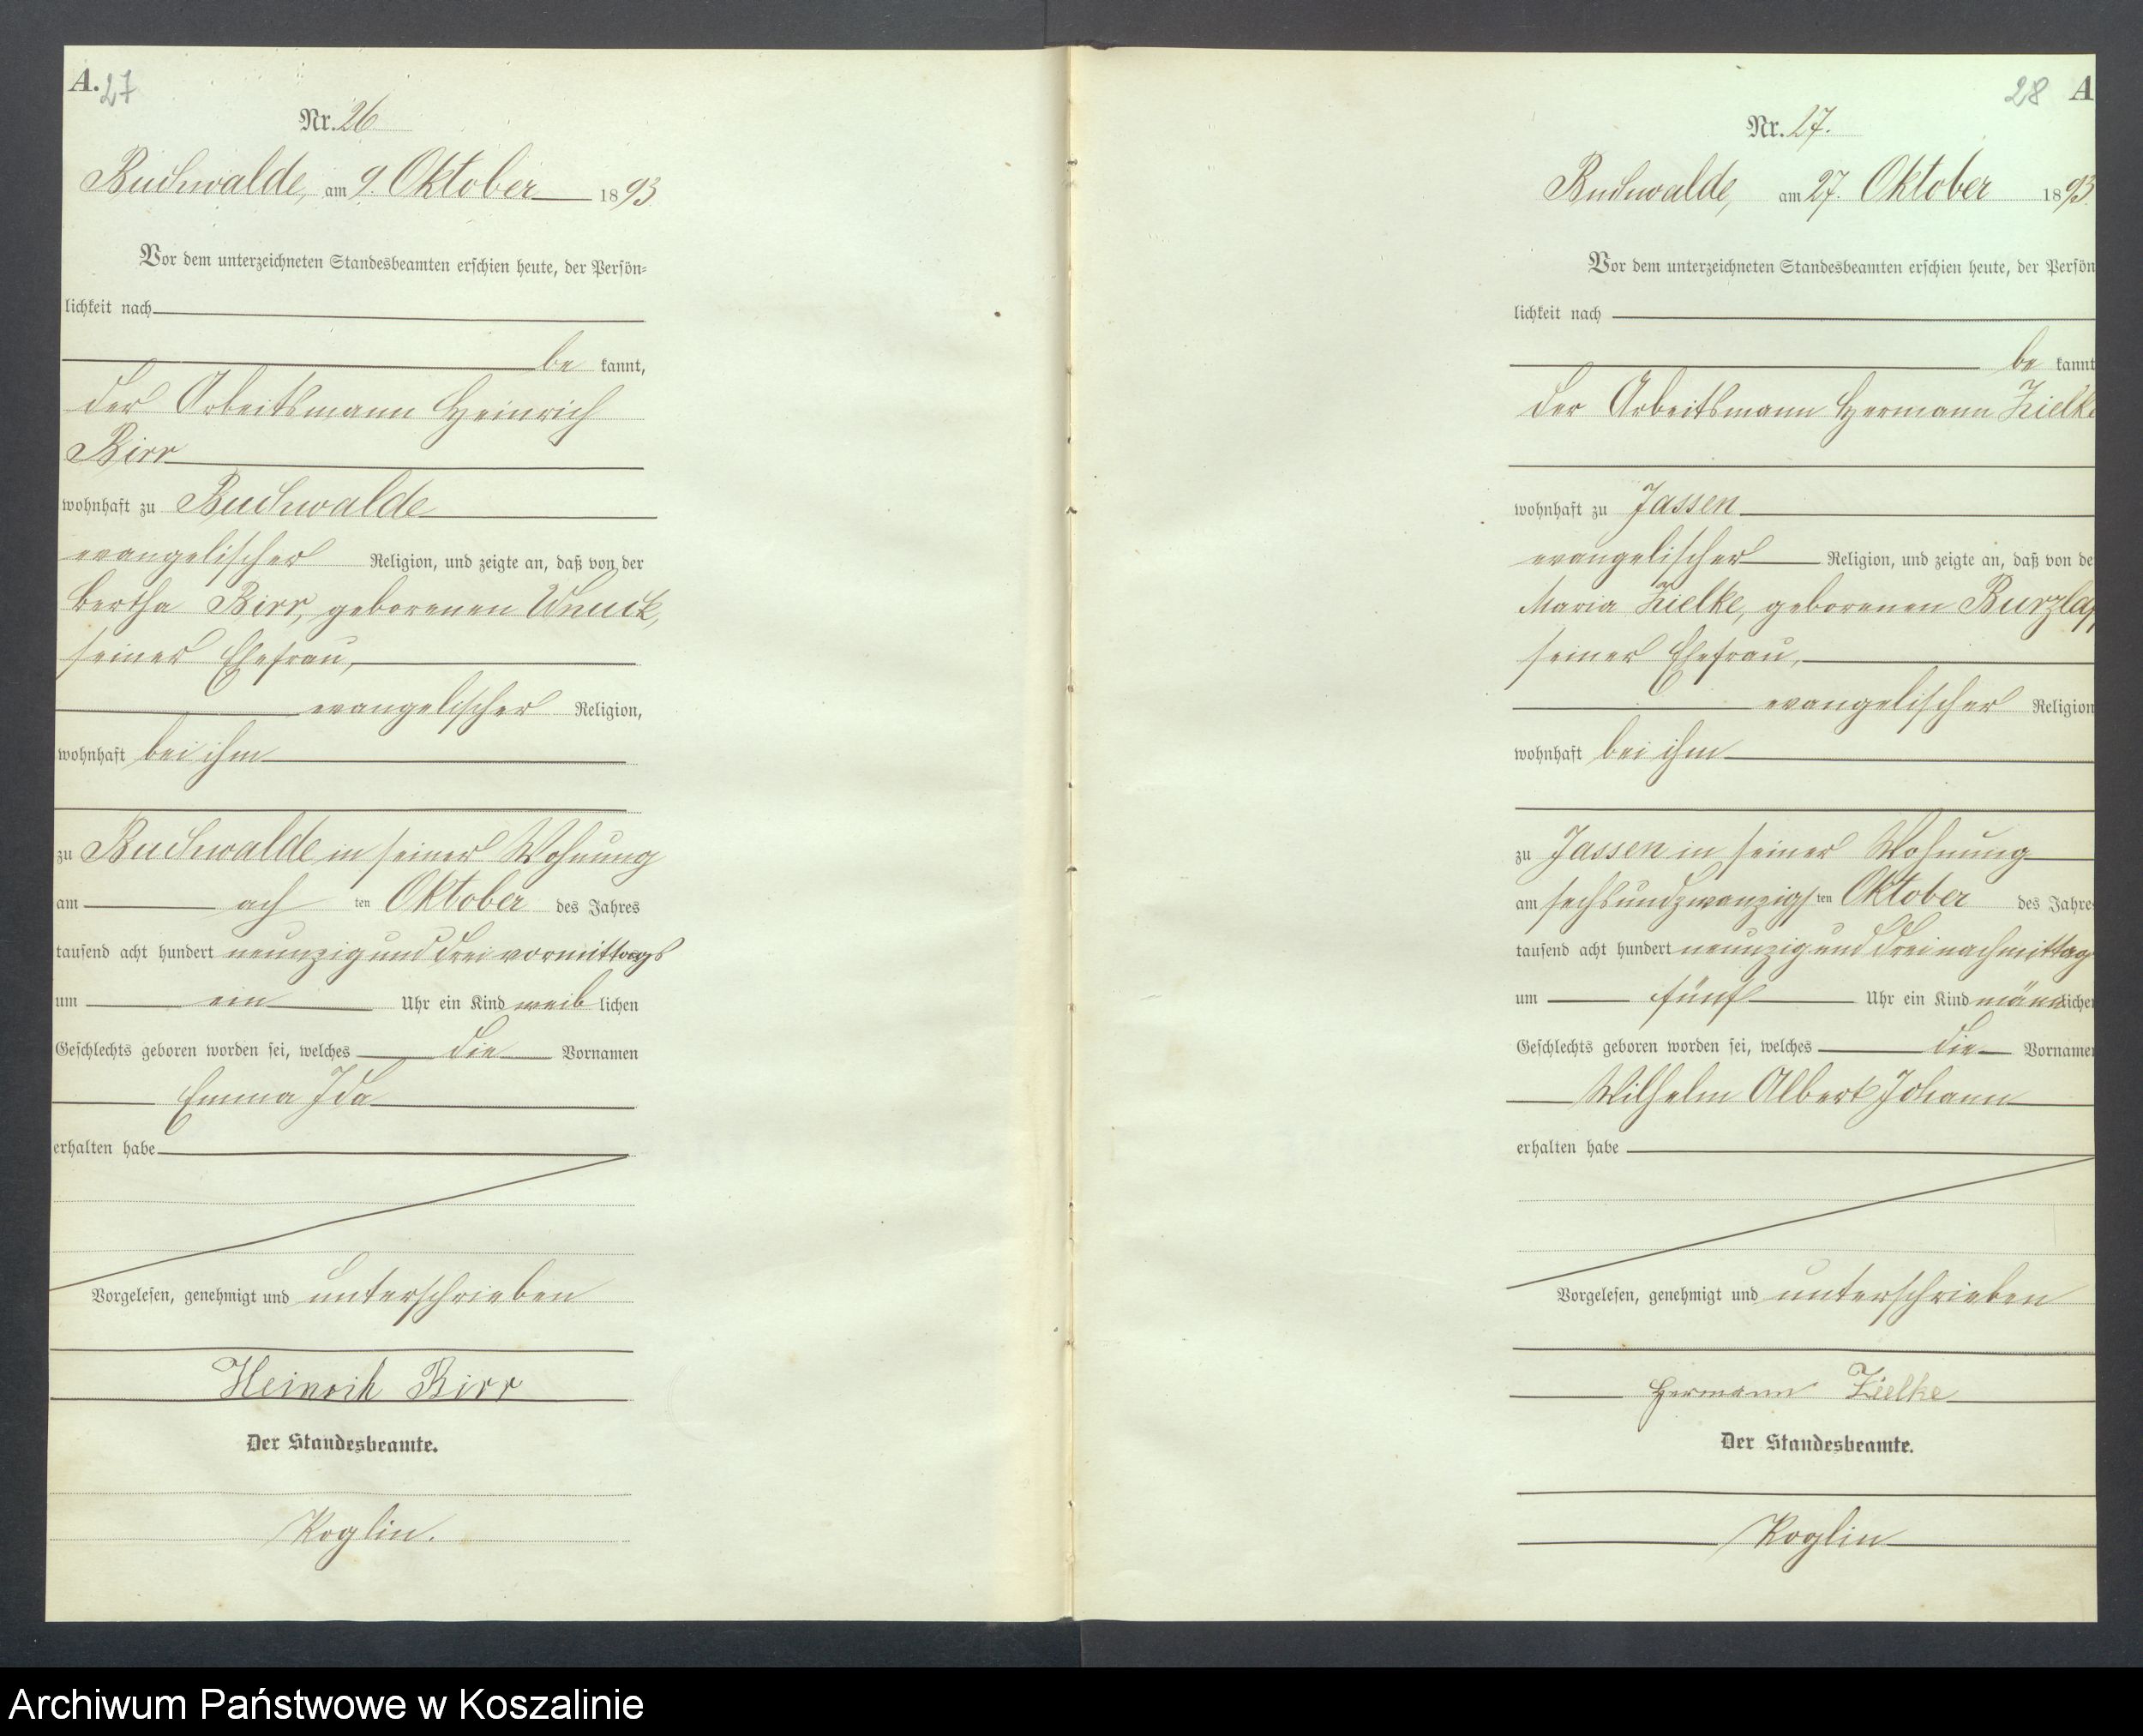 A. 27
Nr. 26
Buchwalde, am 9. Oktober 1893
Vor dem unterzeichneten Standesbeamten erschien heute, der Persön-
lichkeit nach
be kannt,
der Arbeitsmann Heinrich
Birr
wohnhaft zu Buchwalde
evangelischer Religion, und zeigte an, daß von der
Bertha Birr, geborenen Wnuck,
seiner Ehefrau,
evangelischer Religion,
wohnhaft bei ihm
zu Buchwalde in seiner Wohnung
am ach ten Oktober des Jahres
tausend acht hundert neunzig und drei vormittags
um ein Uhr ein Kind weib lichen
Geschlechts geboren worden sei, welches die Vornamen
Emma Ida
erhalten habe
Vorgelesen, genehmigt und unterschrieben
Heinrich Birr
Der Standesbeamte.
Koglin.
28 A
Nr. 27.
Buchwalde, am 27. Oktober 1893.
Vor dem unterzeichneten Standesbeamten erschien heute, der Persön
lichkeit nach
be kannt
der Arbeitsmann Hermann Zielke
wohnhaft zu Jassen
evangelischer Religion, und zeigte an, daß von de
Maria Zielke, geborenen
seiner Ehefrau,
evangelischer Religion
wohnhaft bei ihm
zu Jassen in seiner Wohnung
am sechsundzwanzigs ten Oktober des Jahre
tausend acht hundert neunzig und drei nachmittag
um fünf Uhr ein Kind männ liche
Geschlechts geboren worden sei, welches die Vorname
Wilhelm Albert Johann
erhalten habe
Vorgelesen, genehmigt und unterschrieben
Hermann Zielke
Der Standesbeamte.
Koglin
Archiwum Państwowe w Koszalinie